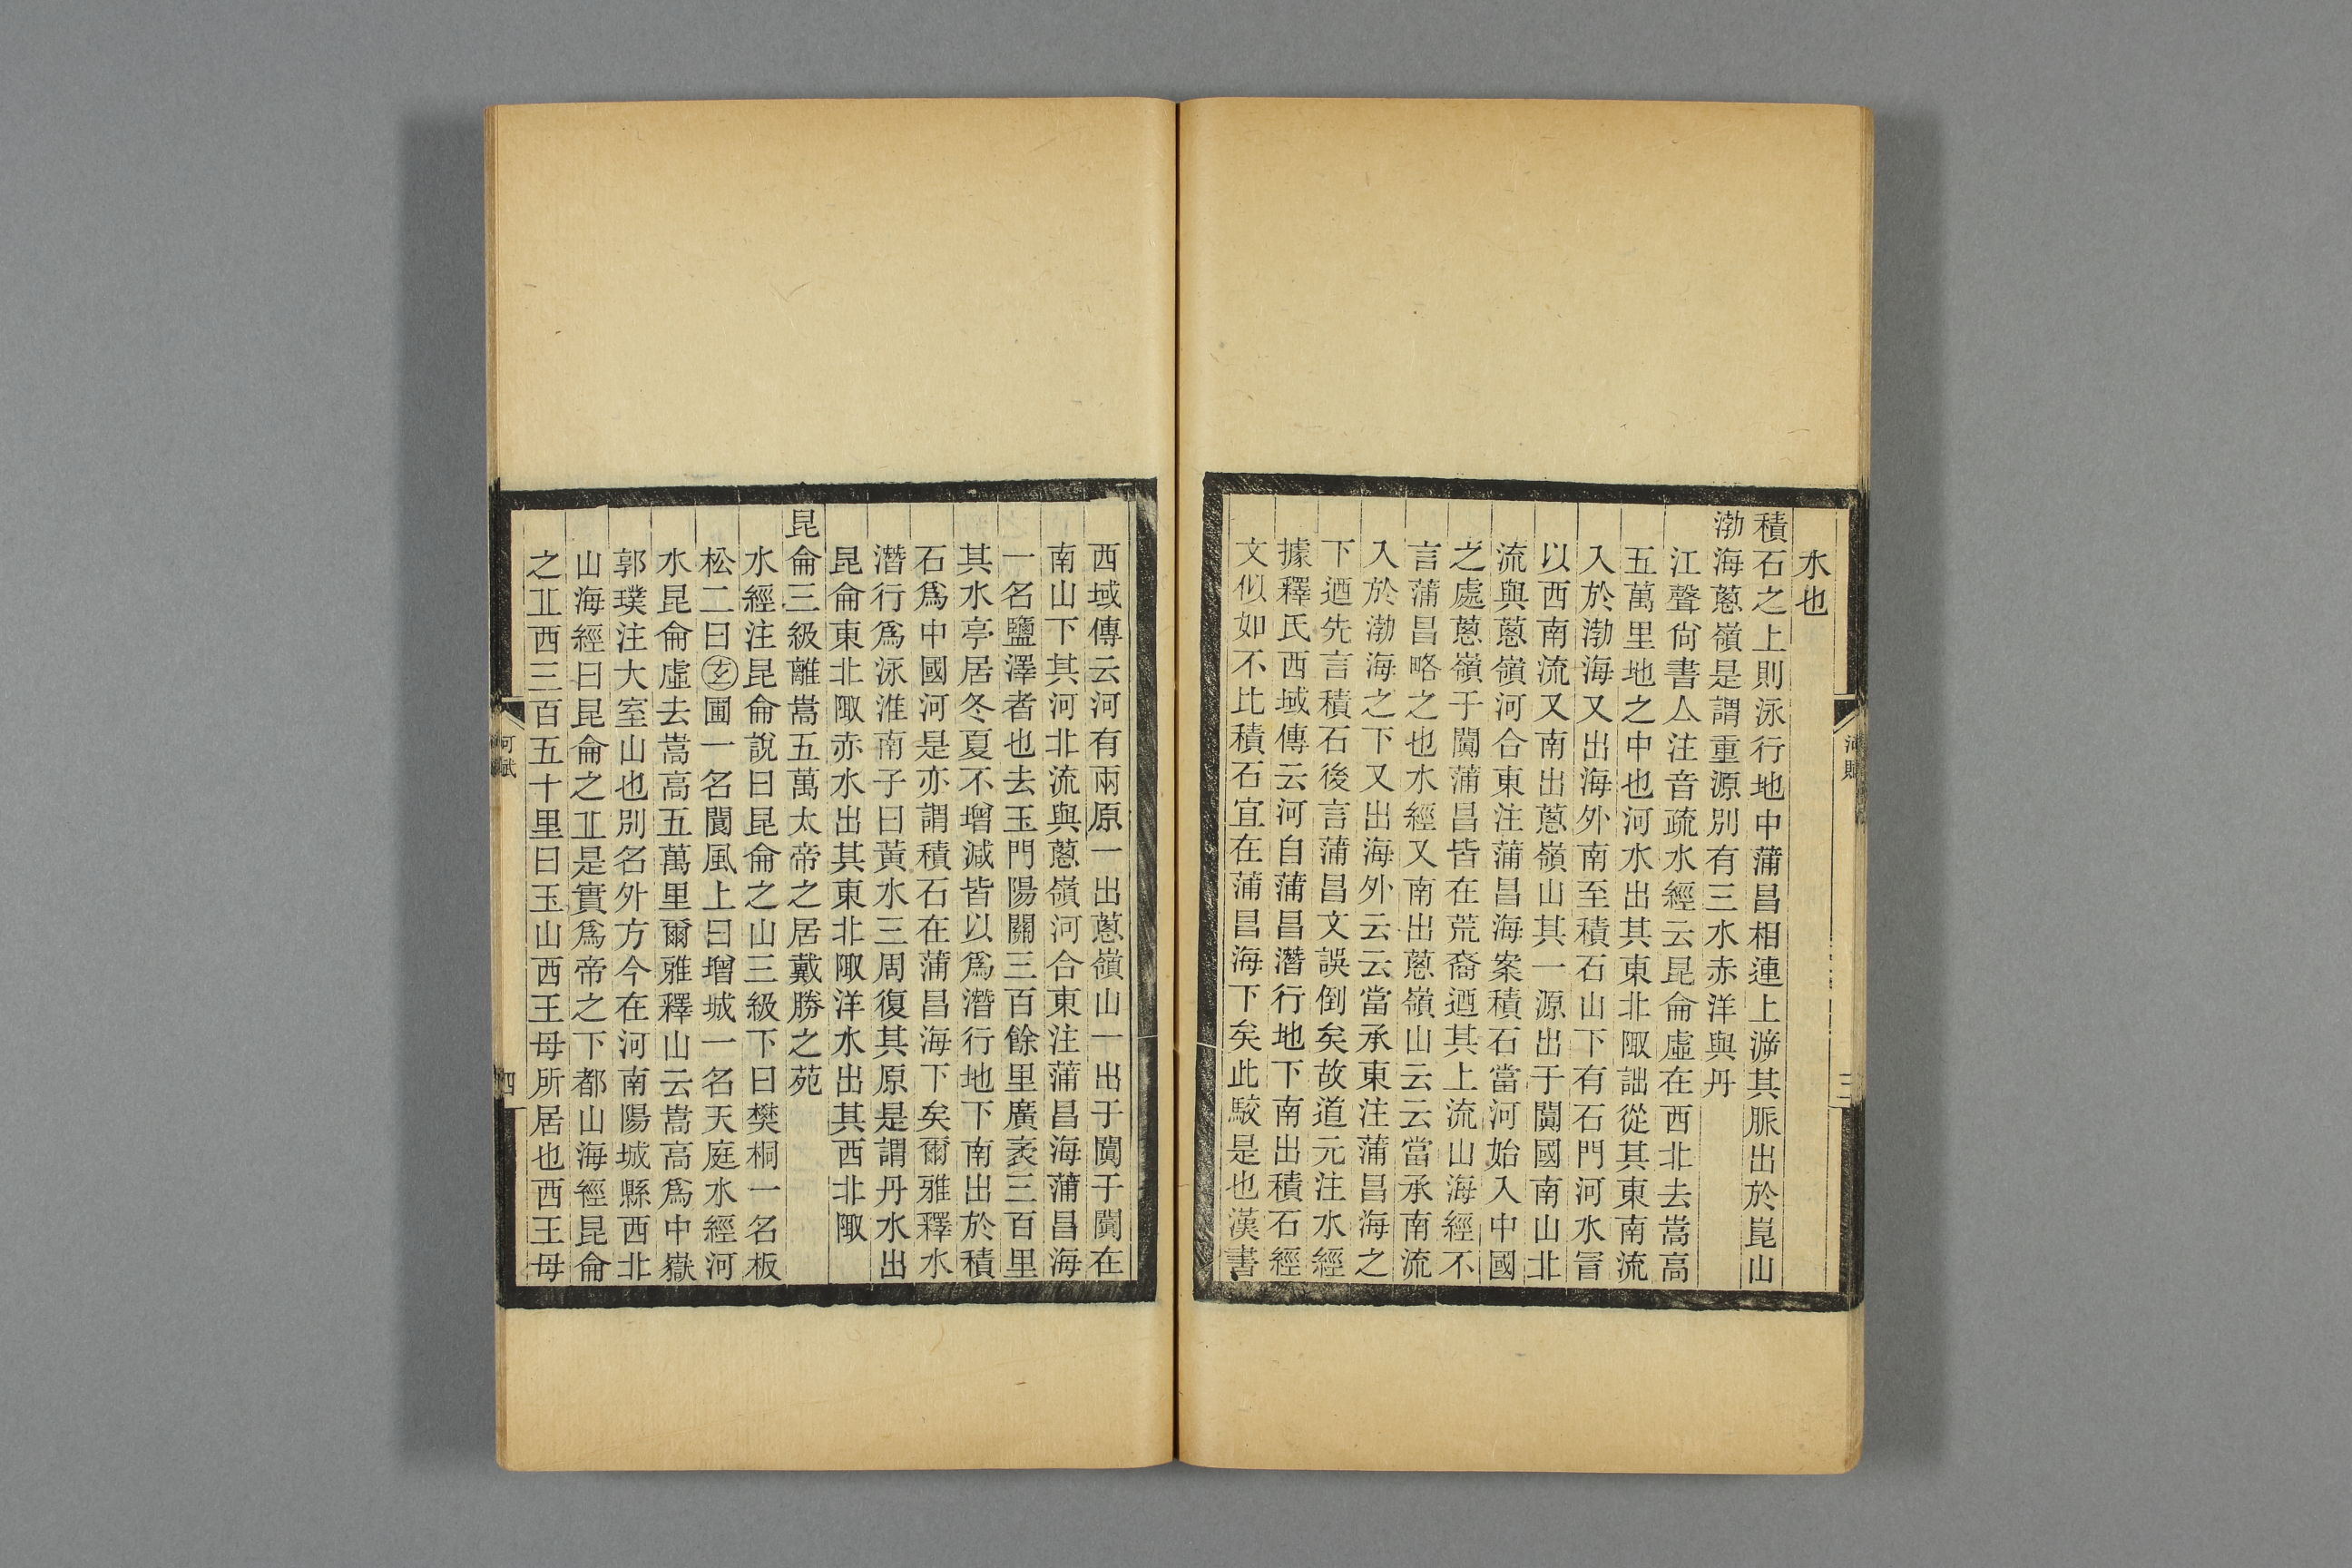 河賦
三
水也
積石之上則泳行地中蒲昌相連上㴑其脈出於崑山
渤海蔥嶺是謂重源別有三水赤洋與丹
江聲尙書亼注音疏水經云昆侖虛在西北去嵩高
五萬里地之中也河水出其東北陬詘從其東南流
入於渤海又出海外南至積石山下有石門河水冒
以西南流又南出蔥嶺山其一源出于闐國南山北
流與蔥嶺河合東注蒲昌海案積石當河始入中國
之處蔥嶺于闐蒲昌皆在荒裔迺其上流山海經不
言蒲昌略之也水經又南出蔥嶺山云云當承南流
入於渤海之下又出海外云云當承東注蒲昌海之
下迺先言積石後言蒲昌文誤倒矣故道元注水經
據釋氏西域傳云河自蒲昌潛行地下南出積石經
文似如不比積石宜在蒲昌海下矣此駮是也漢書
西域傳云河有兩原一出蔥嶺山一出于闐于闐在
南山下其河北流與蔥嶺河合東注蒲昌海蒲昌海
一名鹽澤者也去玉門陽關三百餘里廣袤三百里
其水亭居冬夏不增減皆以爲潛行地下南出於積
石爲中國河是亦謂積石在蒲昌海下矣爾雅釋水
潛行爲泳淮南子曰黃水三周復其原是謂丹水出
昆侖東北陬赤水出其東北陬洋水出其西北陬
昆侖三級離嵩五萬太帝之居戴勝之苑
水經注昆侖說曰昆侖之山三級下曰樊桐一名板
松二曰玄圃一名閬風上曰增城一名天庭水經河
水昆侖虛去嵩高五萬里爾雅釋山云嵩高爲中嶽
郭璞注大室山也別名外方今在河南陽城縣西北
山海經曰昆侖之丠是實爲帝之下都山海經昆侖
之丠西三百五十里曰玉山西王母所居也西王母
河賦
四